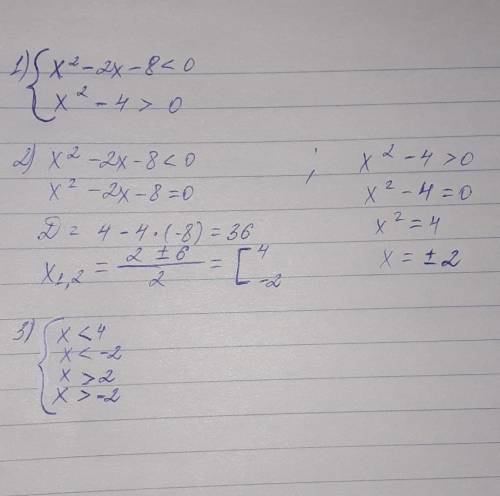 1) { x² - 2x - 8 < 0
x² - 4 > 0
2) x² - 2x - 8 < 0 ; x² - 4 > 0
x² - 2x - 8 = 0 x² - 4 = 0
D = 4 - 4 · (-8) = 36 x² = 4
x₁,₂ = (2 ± 6)/2 = [ 4 -2 x = ± 2
3) { x < 4
x < -2
x > 2
x > -2